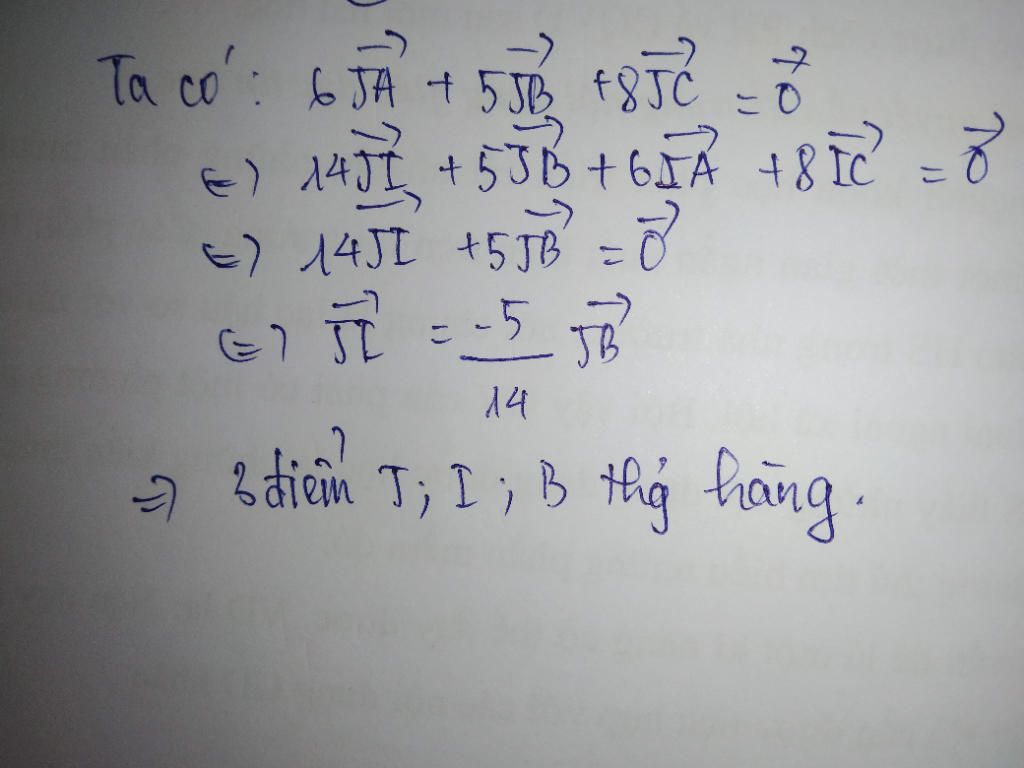 Ta có: 6\overrightarrow{JA} + 5\overrightarrow{JB} + 8\overrightarrow{JC} = \overrightarrow{0}
⇔ 14\overrightarrow{JI} + 5\overrightarrow{JB} + 6\overrightarrow{IA} + 8\overrightarrow{IC} = \overrightarrow{0}
⇔ 14\overrightarrow{JI} + 5\overrightarrow{JB} = \overrightarrow{0}
⇔ \overrightarrow{JI} = \frac{-5}{14} \overrightarrow{JB}
⇒ 3 điểm J; I; B thg̉ hàng.